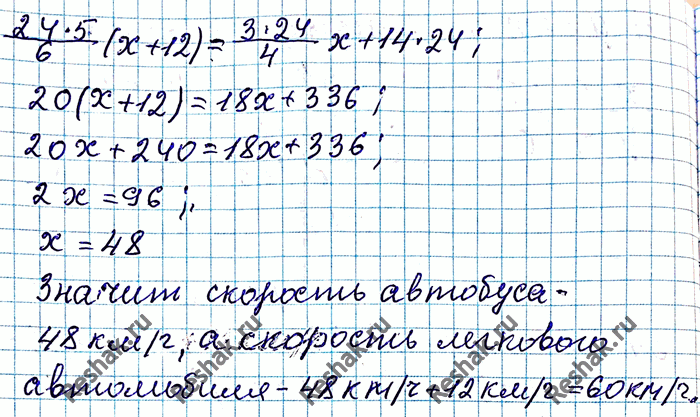 24·5/6 (x+12) = 3·24/4 x+14·24;
20(x+12)=18x+336;
20x+240=18x+336;
2x=96;
x=48
Значит скорость автобуса -
48 км/г, а скорость легкового
автомобиля - 48 км/ч + 12 км/г = 60 км/г.
Reshak.ru Reshak.ru Reshak.ru Reshak.ru Reshak.ru